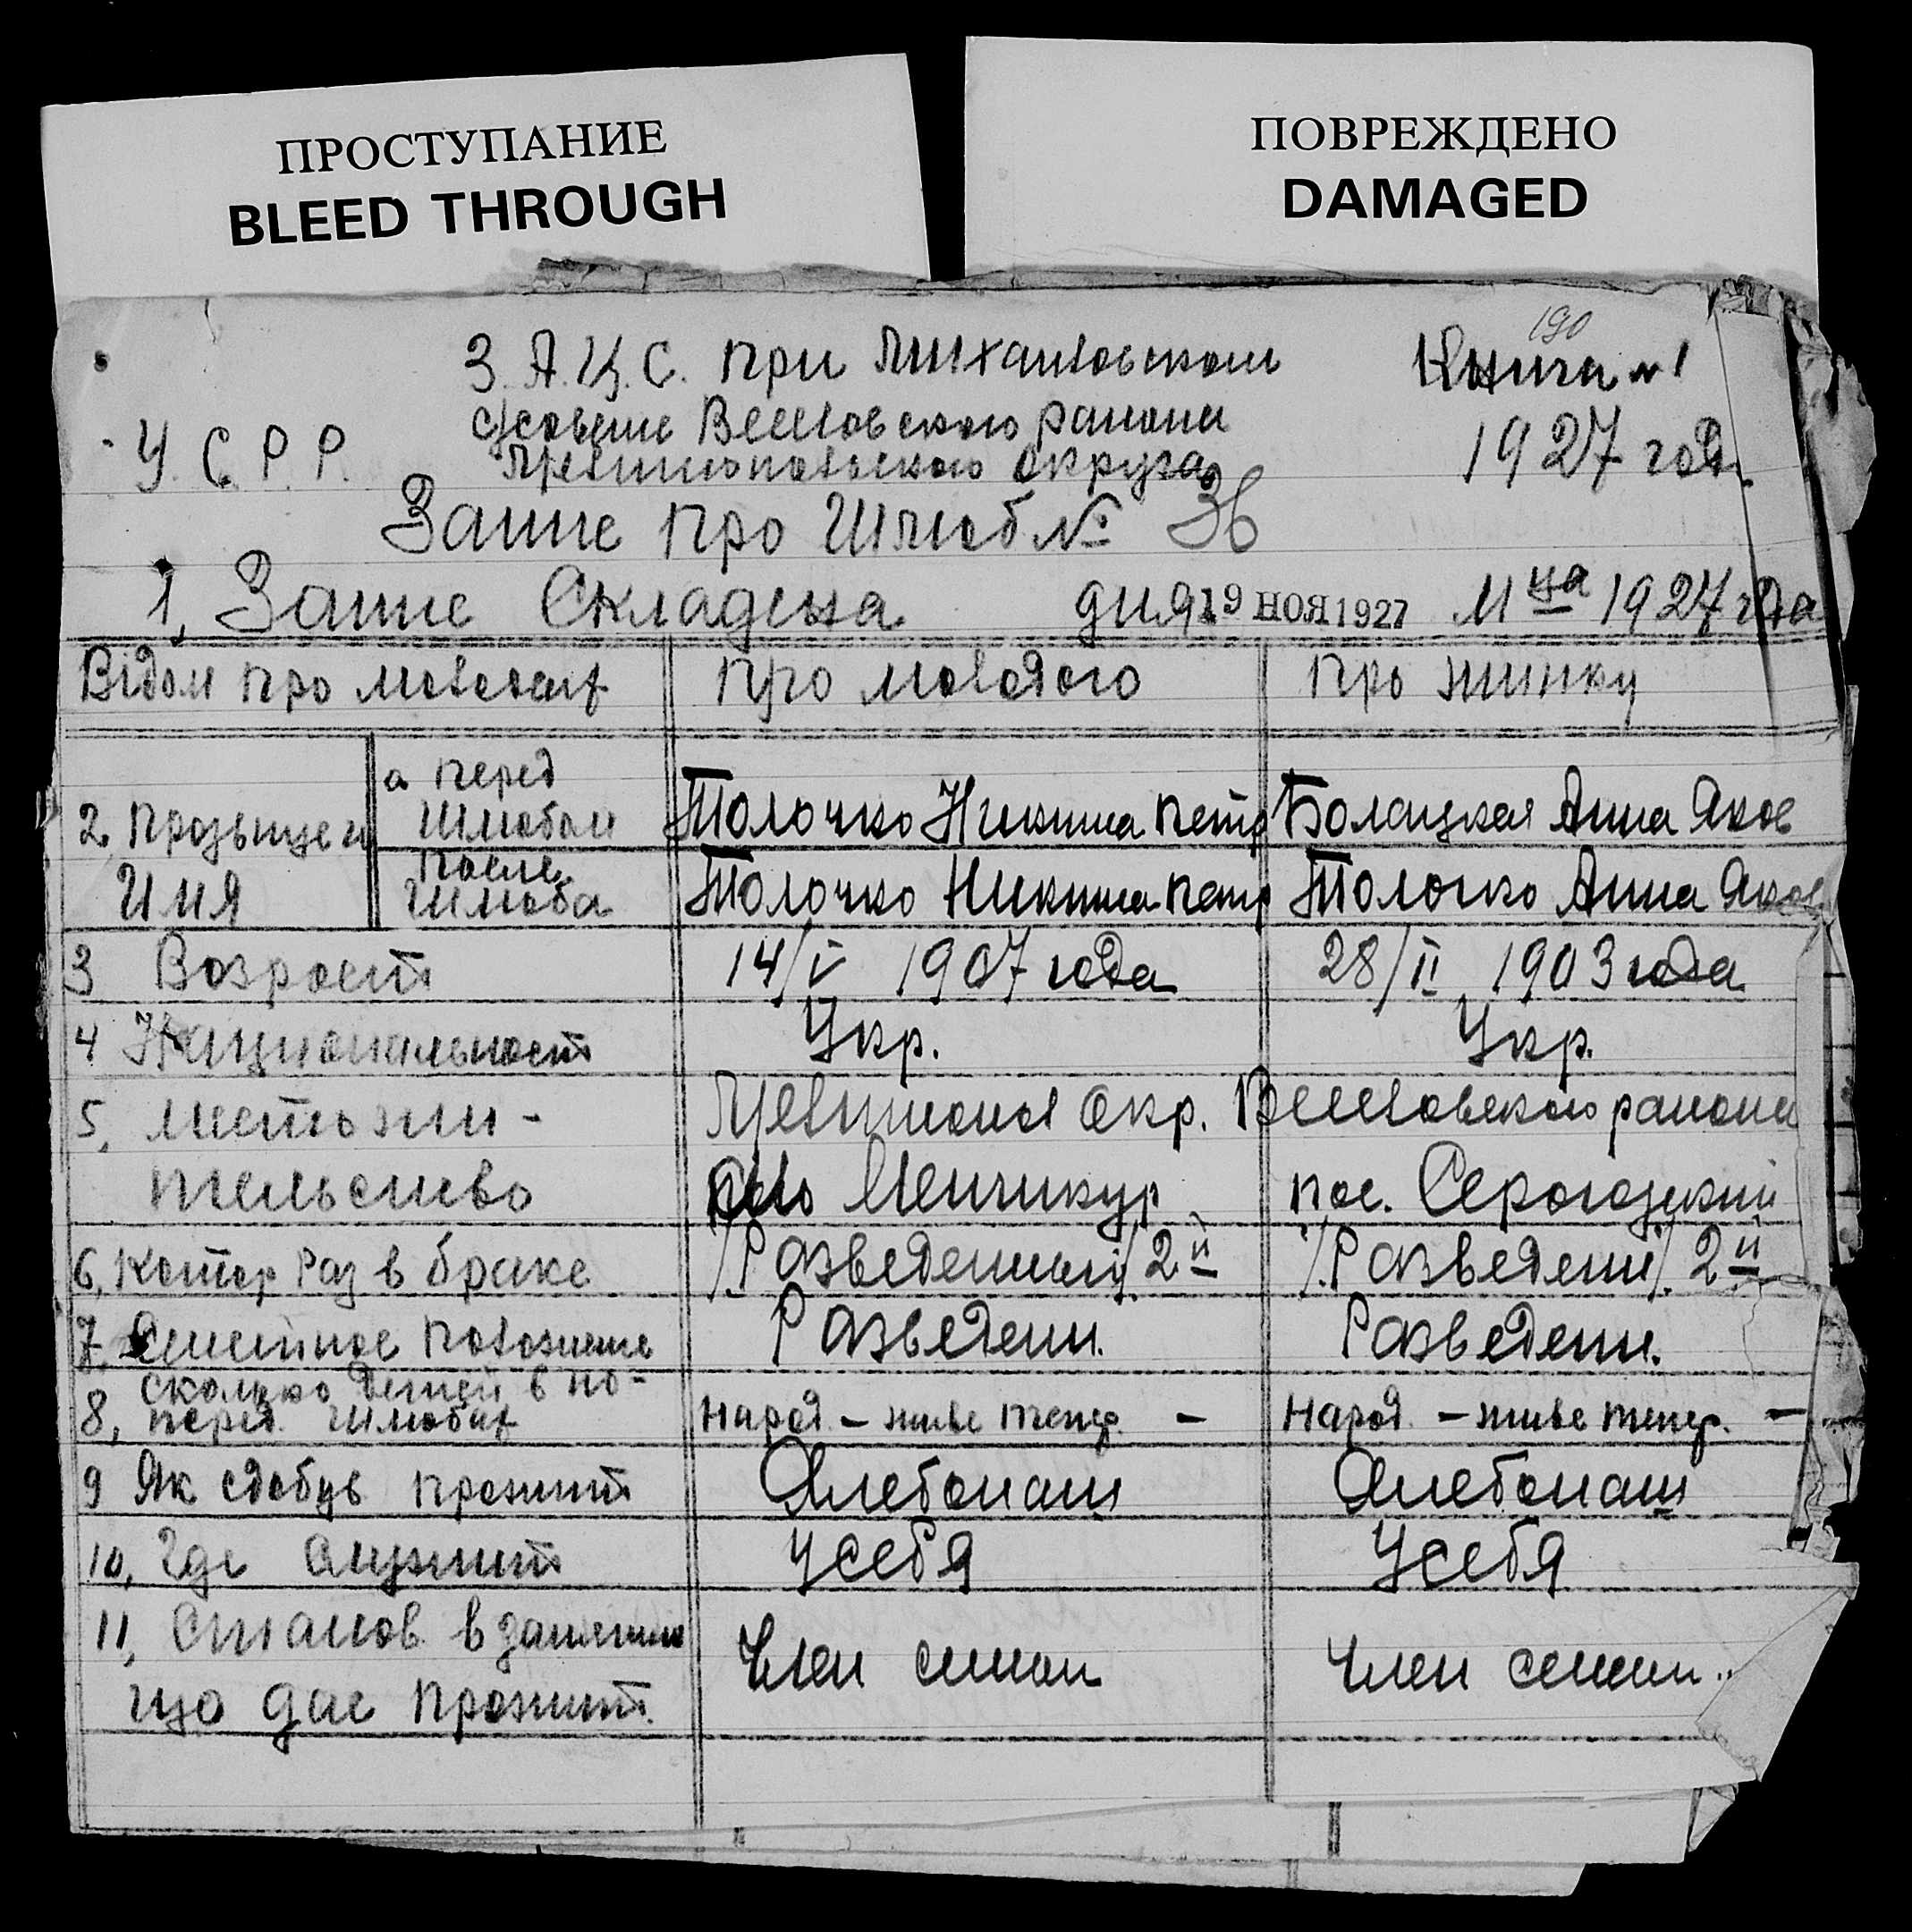 ПРОСТУПАНИЕ
BLEED THROUGH
ПОВРЕЖДЕНО
DAMAGED
190
З.А.Ц.С. при Михайловском
Книга №1
Веселовского района
У.С.Р.Р.
Мелитопольского округа
1927 год.
Запис про Шлюб № 36
1, Запис Складена дня 19 НОЯ 1927 М ца 1927 года
Відом про молодих
про молодого
про жинку
2. Прозвище и Имя
а перед Шлюбом
Толочко Никита Петр
Болацкая Анна Яков
после Шлюба
Толочко Никита Петр
Толочко Анна Яков
3 Возраст
14/V 1907 года
28/II 1903 года
4 Национальност
Укр.
Укр.
5, Место жи-
Мелитопол Окр. Веселовского района
тельство
Село Менчикур
пос. Серогозский
6, Котор Раз в браке
/Разведенный/ 2й
/Разведен/ 2й
7, Семейное положение
Разведен.
Разведен.
сколько детей в но-
8, перед шлюбих
Народ. – живе тепер. –
Народ. – живе тепер. –
9 Як сдобув прожит
Хлебопаш
Хлебопаш
10, Где служит
У себя
У себя
11, Станов в занятии
Член семьи
Член семьи
що дае прожит.